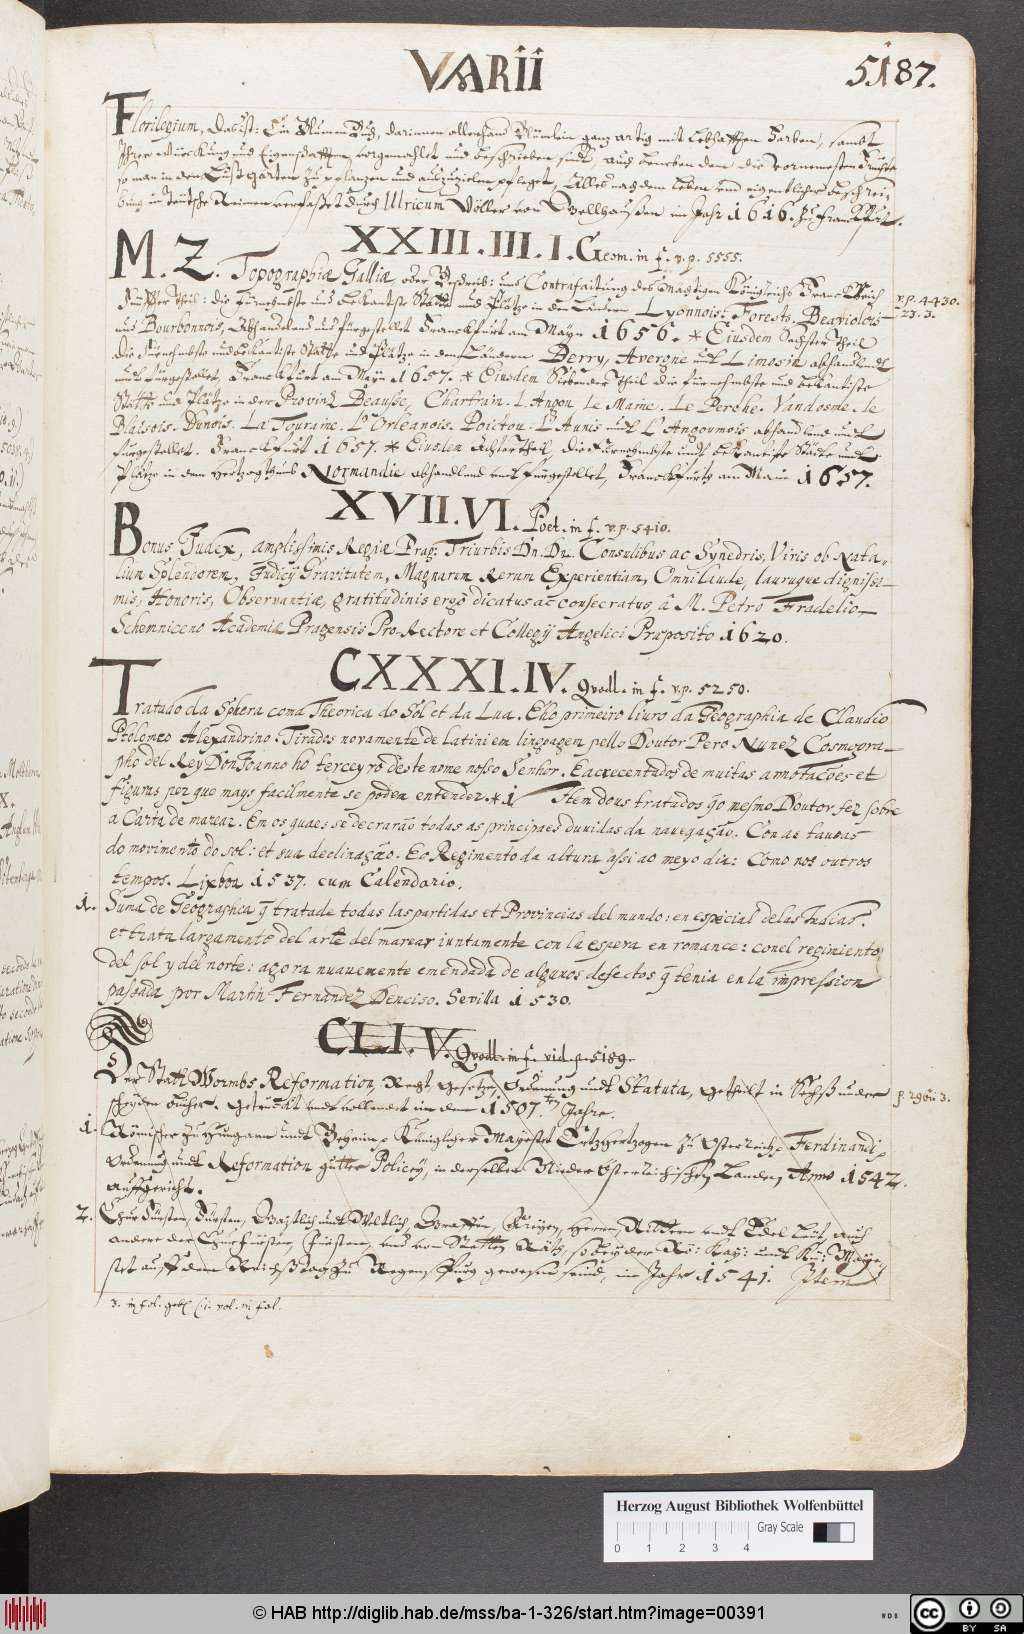 VARII
5187.
Florilegium, Das ist: Ein Blumen Buch, darinnen allerhand Blümlein ganz artig mit lebhafften Farben, sambt
Ihrer Würckung und Eigenschafften, vorgemahlet und beschrieben sindt, auch beneben dem die vornemesten Früchte
so man in den Lust Garten zu pflanzen und aufzuzielen pfleget, Alles nach dem Leben und eigentlicher beschrei-
bung in teutsche Reimen verfasset durch Ulricum Völler von Gellhausen im Jahr 1616. zu Franckfurt.
XXIII. III. I. Geom. in f. v. p. 5555.
M. Z. Topographiæ Galliæ, oder Beschreib: und Contrafaitung des Mächtigen Königreichs Franckreich
Fünffter theil: die fürnehmbste und bekantiste Stätte und Plätze in den Ländern Lyonnois: Forests. Beaviolois
v. p. 4430.
23. 3.
und Bourbonnois, Abhandlend und fürgestellet Franckfurt am Mayn 1656. * Eiusdem Sechster Theil
die fürnehmbste und bekantiste Stätte und Plätze in den Ländern Berry, Avergne undt Limosin abhandlendt
undt fürgestellet, Franckfurt am Mayn 1657. * Eiusdem Siebender Theil die fürnehmbste und bekantiste
Stätte und Plätze in der Provinz Beausse, Chartrain. L'Anjou. Le Maine. Le Perche. Vandosme. le
Blaisois. Dunois. La Touraine. L'Orleanois. Poictou. L'Aunis undt L'Angoumois abhandlend undt
fürgestellet. Franckfurt 1657. * Eiusdem Achter Theil, die Fürnehmbste undt bekantiste Städte undt
Plätze in dem Hertzogthumb Normandie abhandlend undt fürgestellet, Franckfurth am Main 1657.
XVII. VI. Poet. in f. v. p. 5410.
Bonus Judex, amplissimis Regiæ Prag: Triurbis Dn. Dn. Consulibus ac Synedris, Viris ob Nata-
lium Splendorem, Judicij Gravitatem, Magnarum Rerum Experientiam, Omni laude, lauruque dignissi-
mis, Honoris, Observantiæ, gratitudinis ergò dicatus ac consecratus, â M. Petro Fradelio
Schemniceno Academiæ Pragensis Pro-Rectore et Collegij Angelici Præposito 1620.
CXXXI. IV. Quodl. in f. v. p. 5250.
Tratado da Sphera com a Theorica do Sol et da Lua. E ho primeiro livro da Geographia de Claudio
Ptolomeo Alexandrino. Tirados novamente de Latin em lingoagen pello Doutor Pero Nunez Cosmogra-
pho del Rey Don Joanno ho terceyro deste nome nosso Senhor. E acrecentados de muitas annotacões et
figuras per que mays facilmente se poden entender. * 1 Item dous tratados q̃ o mesmo Doutor fez sobre
a Carta de marear. Em os quaes se decrarão todas as principaes duvidas da navegação. Con as tavoas
do movimento do sol: et sua declinação. E o Regimento da altura assi ao meyo dia: como nos outros
tempos. Lixboa 1537. cum Calendario.
1. Suma de Geographia q̃ tratade todas las partidas et Provincias del mundo: en especial de las Indias.
et trata largamente del arte del marear iuntamente con la espera en romance: con el regimiento
del sol y del norte: agora nuavemente emendada de algunos defectos q̃ tenia en la impression
passada por Martin Fernandez Denciso. Sevilla 1530.
CLI. V. Quodl. in f. vid. p. 5189.
Der Statt Wormbs Reformation, Recht, gesetze, Ordnung undt Statuta, getheilt in Sechß under
p. 2960 3.
schyden bücher. Getruckt undt vollendet im dem 1507.ten Jahre.
1. Römischer zu Hungarn undt Beheim, p Königlicher Mayestet Ertzhertzogen zu Osterreich p Ferdinandi p
Ordnung undt Reformation gutter Policey, in derselben Nieder Osterreichischen Landen, Anno 1542.
auffgericht.
2. Churfürsten, Fürsten, Gaystlich undt Weltlich, Graffen, Freyen, Herrn, Rittern undt Edel leut, auch
andere der Churfürsten, Fürsten, und von Stetten Räth, so bey der Rö: Kay: undt Kü: Maye-
stet auff dem Reichßtag zu Regenspurg gewesen seind, im Jahr 1541. Item
3. in fol. geb. (1. vol. in fol.
Herzog August Bibliothek Wolfenbüttel
Gray Scale
0 1 2 3 4
© HAB http://diglib.hab.de/mss/ba-1-326/start.htm?image=00391
WDB
cc BY SA